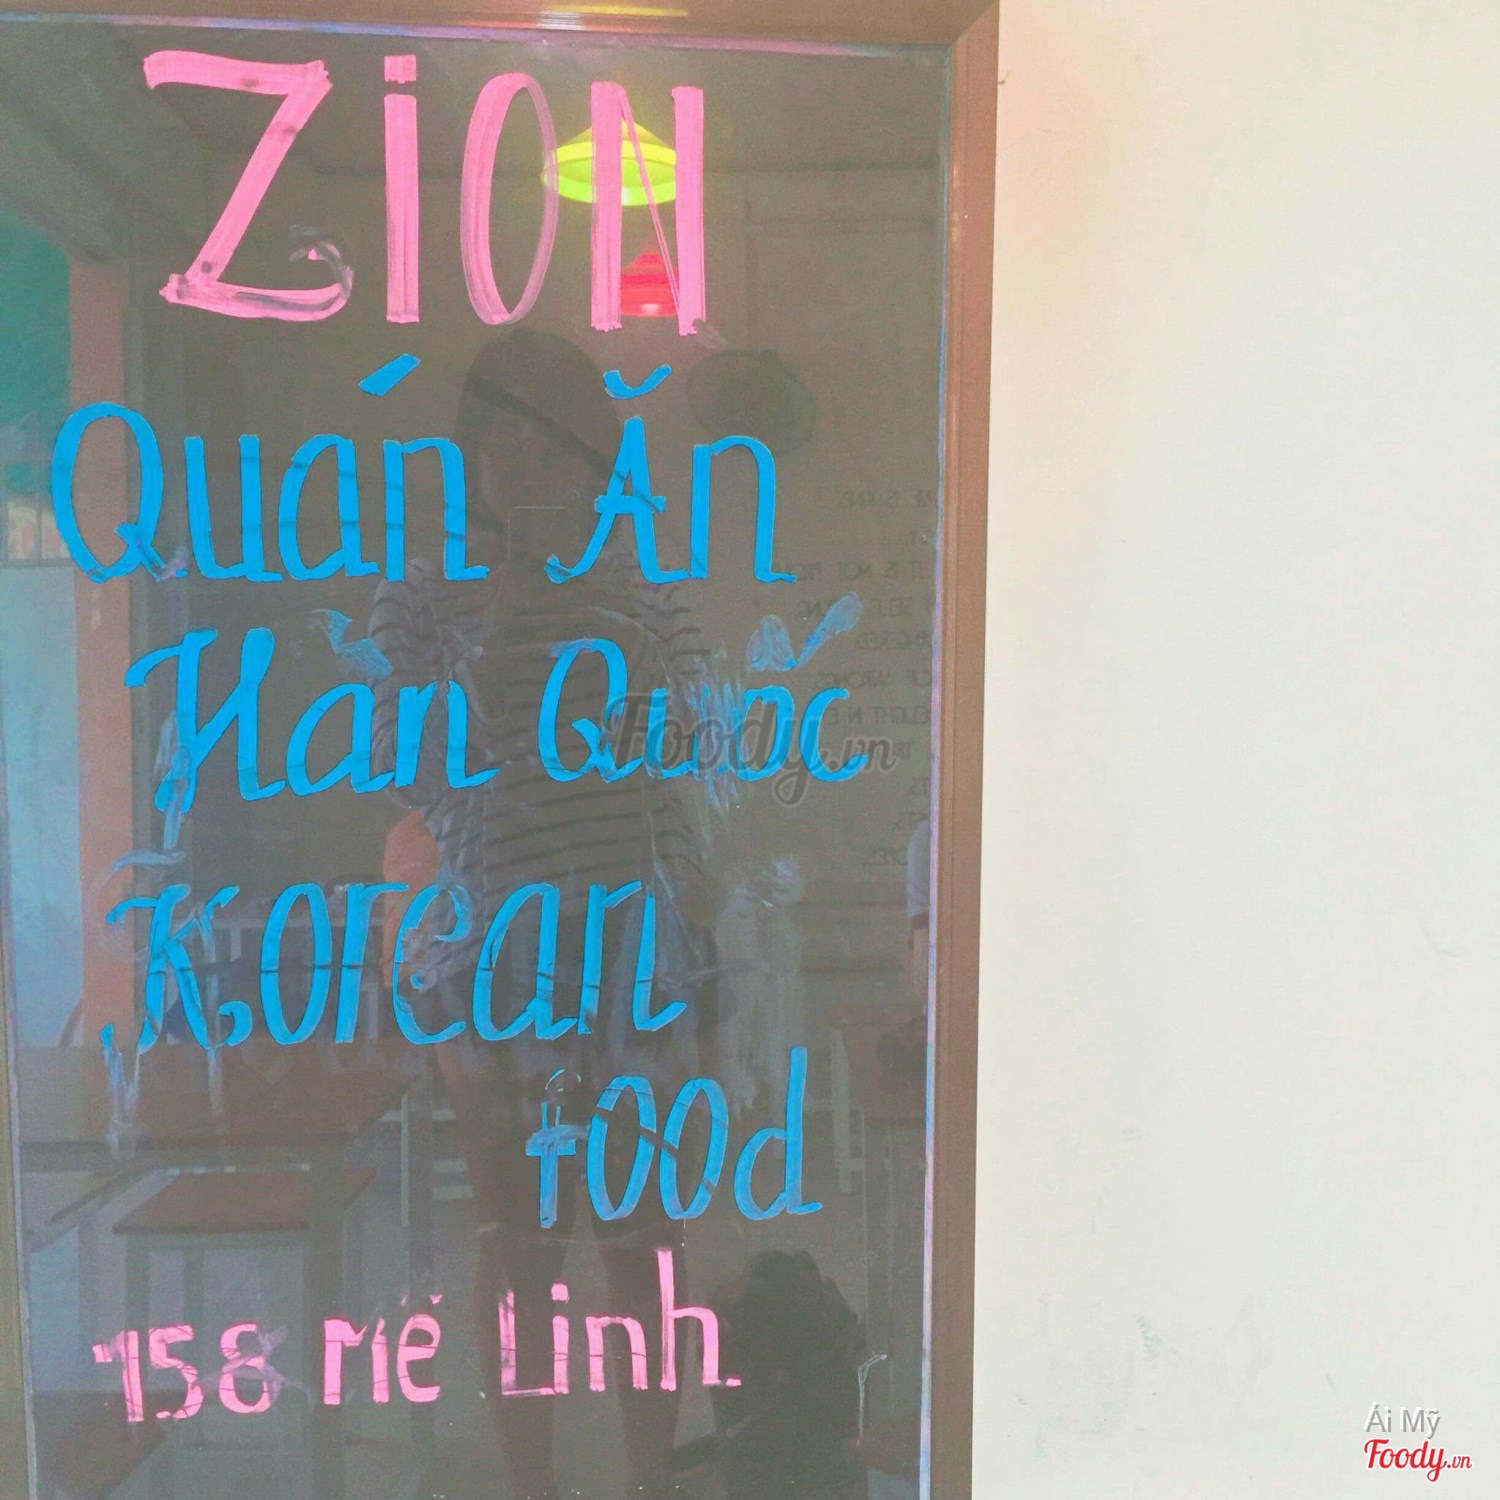 ZiON
Quán Ăn
Hàn Quốc
Korean
food
158 Mê Linh
Foody.vn
Ái Mỹ
Foody.vn